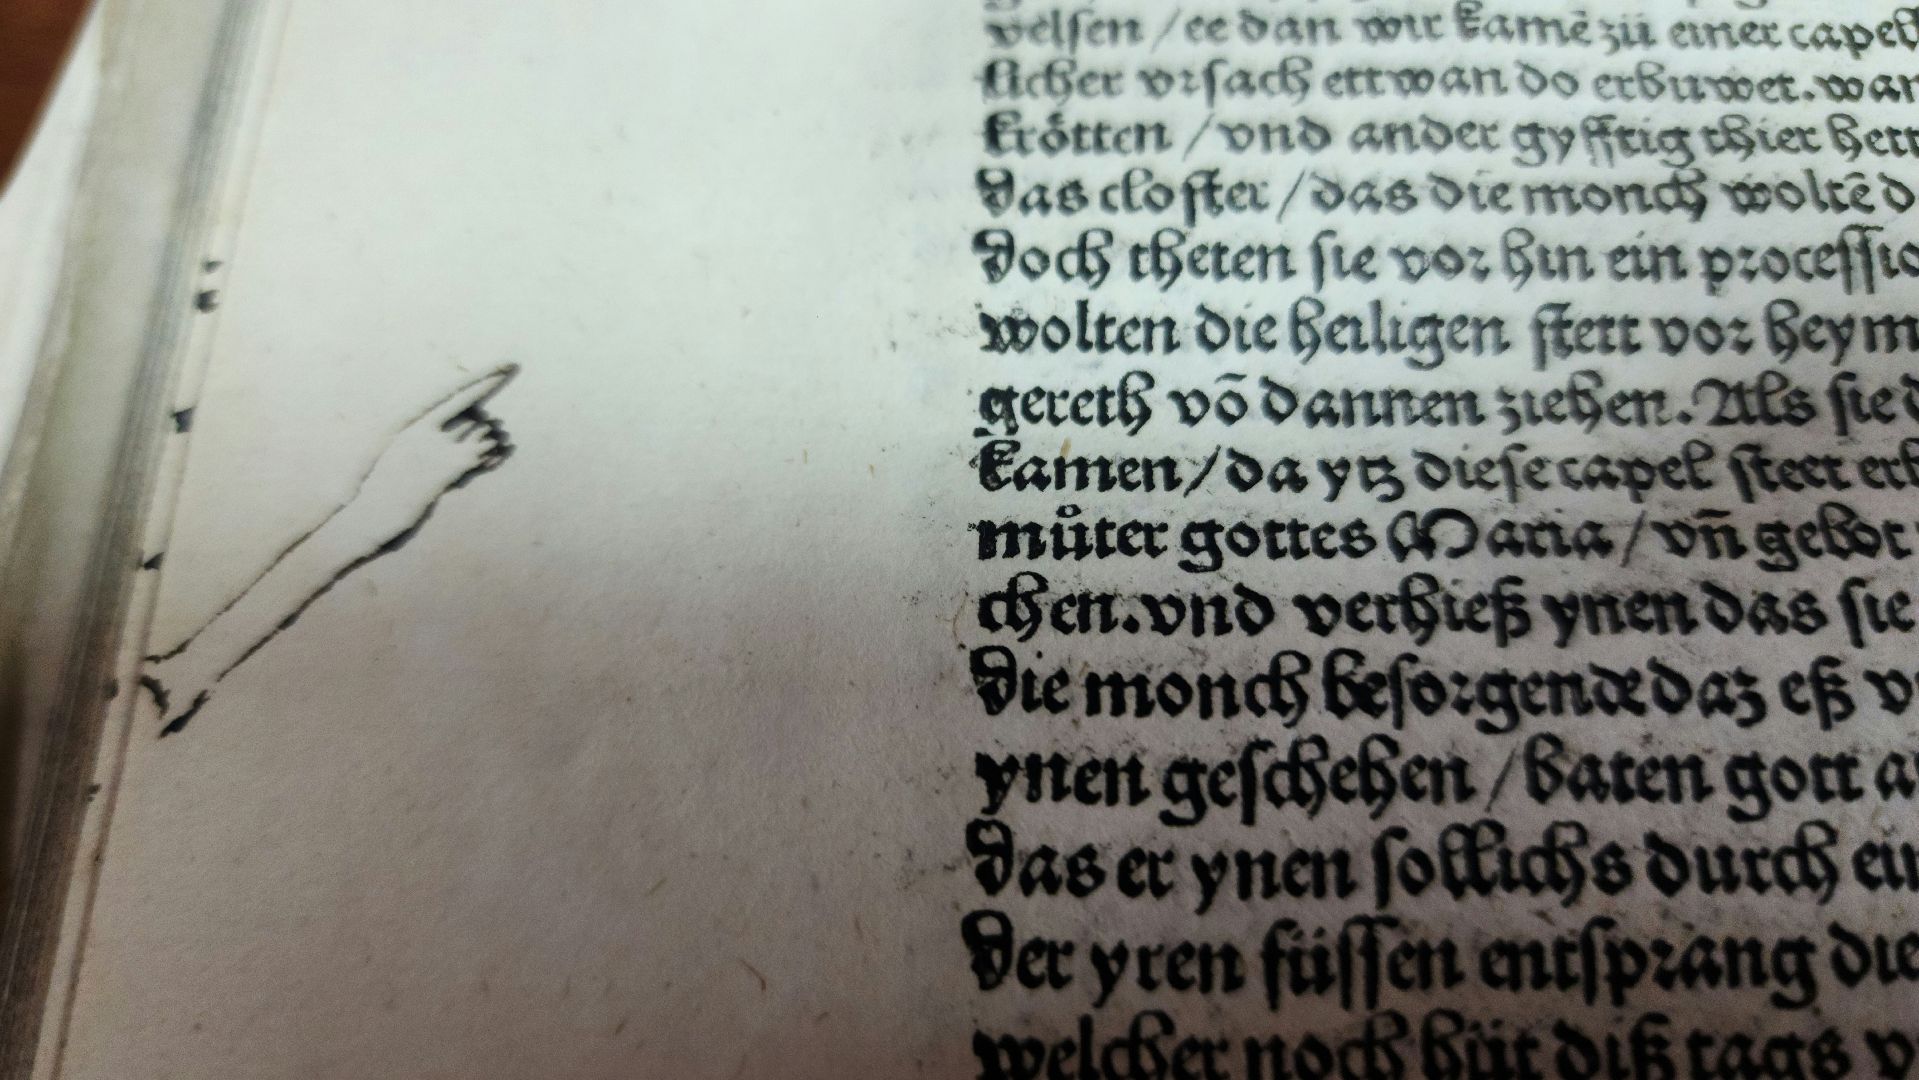 velsen / ee dan wir kamē zů einer capel
licher vrsach ettwan do erbuwet. wan
krőtten / vnd ander gyfftig thier hett
das closter / das die monch woltē d
doch theten sie vor hin ein processio
wolten die heiligen stett vor heym
gereth võ dannen ziehen. Als sie d
kamen / da ytz diese capel steet erb
můter gottes Maria / vñ gebot
chen. vnd verhieß ynen das sie
die monch besorgende daz eß v
ynen geschehen / baten gott a
das er ynen sollichs durch ein
der yren füssen entsprang die
welcher noch hüt diß tags v